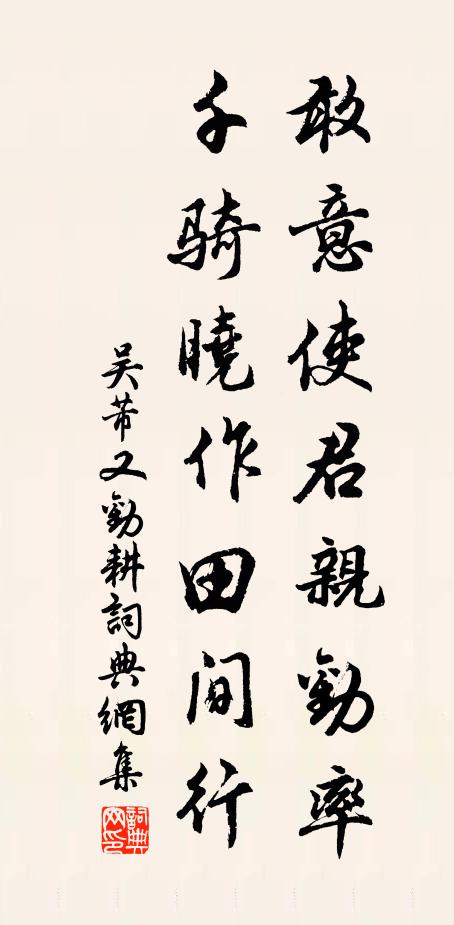 敢意使君親勸率
千騎曉作田間行
吴芾又勸耕詞典網集
詞典
网印